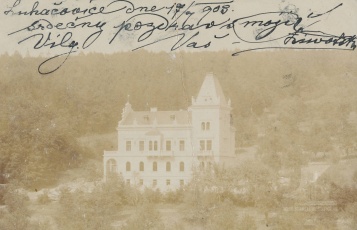 Luhačovice dne 17/9 905.
srdečný pozdrav s mojí
Vily. Váš